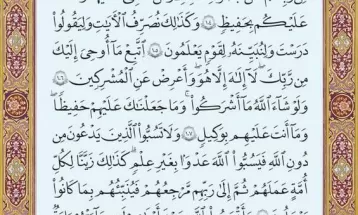 عَلَيْكُم بِحَفِيظٍ ۝١٠٤ وَكَذَٰلِكَ نُصَرِّفُ الْآيَاتِ وَلِيَقُولُوا
دَرَسْتَ وَلِنُبَيِّنَهُ لِقَوْمٍ يَعْلَمُونَ ۝١٠٥ اتَّبِعْ مَا أُوحِيَ إِلَيْكَ
مِن رَّبِّكَ ۖ لَا إِلَٰهَ إِلَّا هُوَ ۖ وَأَعْرِضْ عَنِ الْمُشْرِكِينَ ۝١٠٦
وَلَوْ شَاءَ اللَّهُ مَا أَشْرَكُوا ۗ وَمَا جَعَلْنَاكَ عَلَيْهِمْ حَفِيظًا ۖ
وَمَا أَنتَ عَلَيْهِم بِوَكِيلٍ ۝١٠٧ وَلَا تَسُبُّوا الَّذِينَ يَدْعُونَ مِن
دُونِ اللَّهِ فَيَسُبُّوا اللَّهَ عَدْوًا بِغَيْرِ عِلْمٍ ۗ كَذَٰلِكَ زَيَّنَّا لِكُلِّ
أُمَّةٍ عَمَلَهُمْ ثُمَّ إِلَىٰ رَبِّهِم مَّرْجِعُهُمْ فَيُنَبِّئُهُم بِمَا كَانُوا